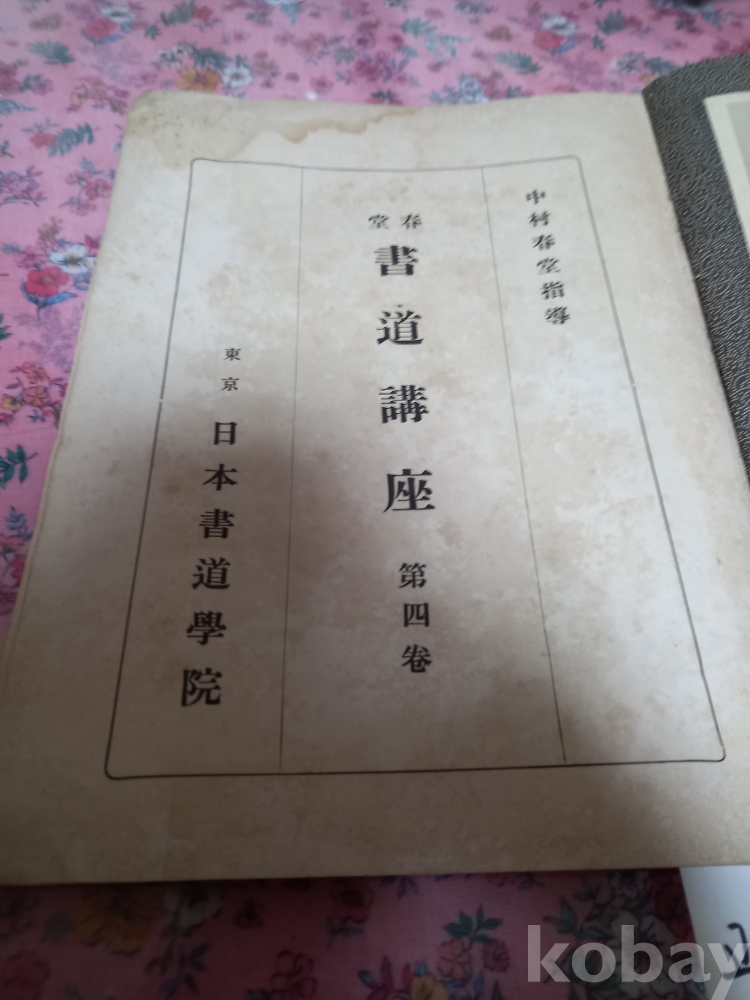 中村春堂指導
春堂
書道講座 第四卷
東京 日本書道學院
kobay